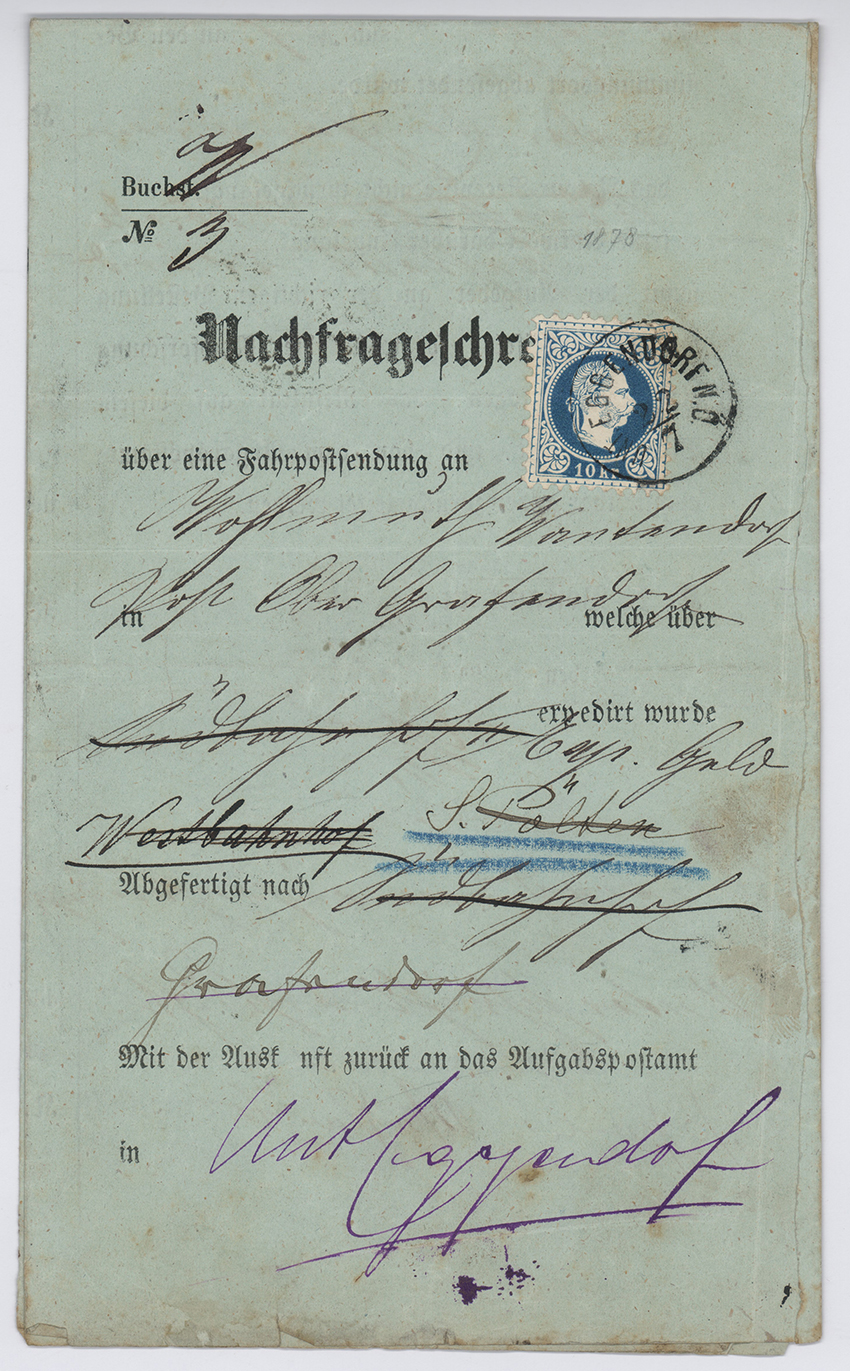 Buchst.
№ 3
1878
Nachfrageschre
EGGENDORF N.Ö
10 Kr.
über eine Fahrpostsendung an
Wohlmuth Wantendorf
in Post Ober Grafendorf welche über
Südbahnhof expedirt wurde
Exp. Geld
Westbahnhof S. Pölten
Abgefertigt nach Südbahnhof
Grafendorf
Mit der Ausk nft zurück an das Aufgabspostamt
in Unt Eggendorf